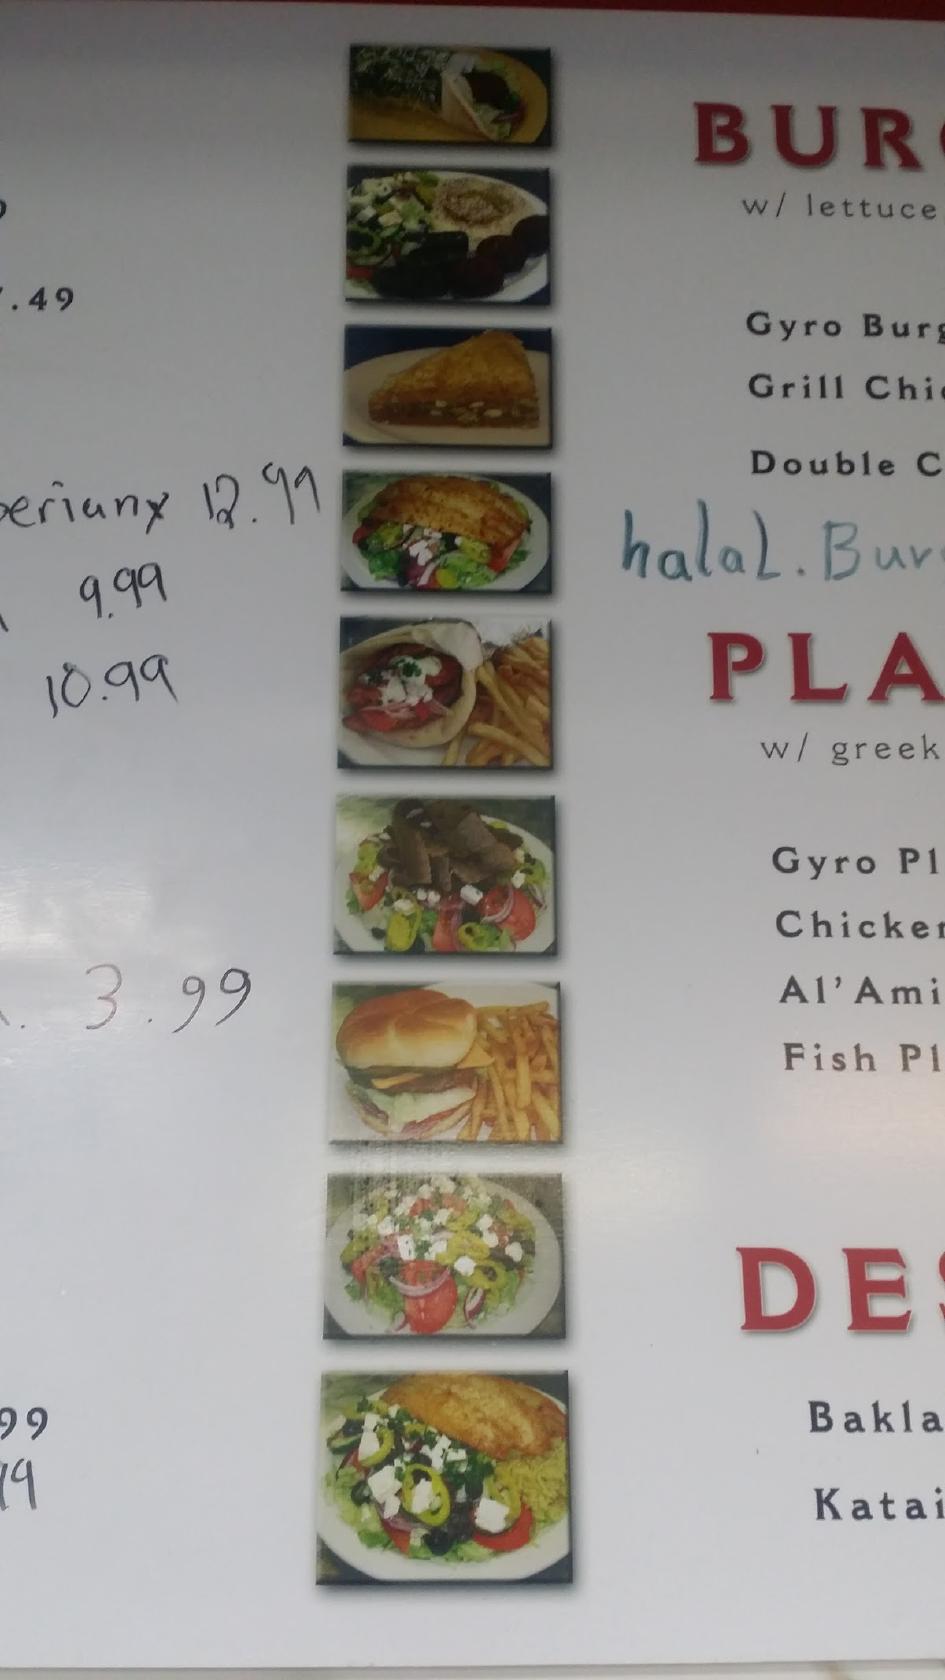 .49
12.99
9.99
10.99
3.99
99
BUR
w/ lettuce
Gyro Burg
Grill Chic
Double C
halaL. Bur
PLA
w/ greek
Gyro Pl
Chicken
Al'Ami
Fish Pl
DES
Bakla
Katai